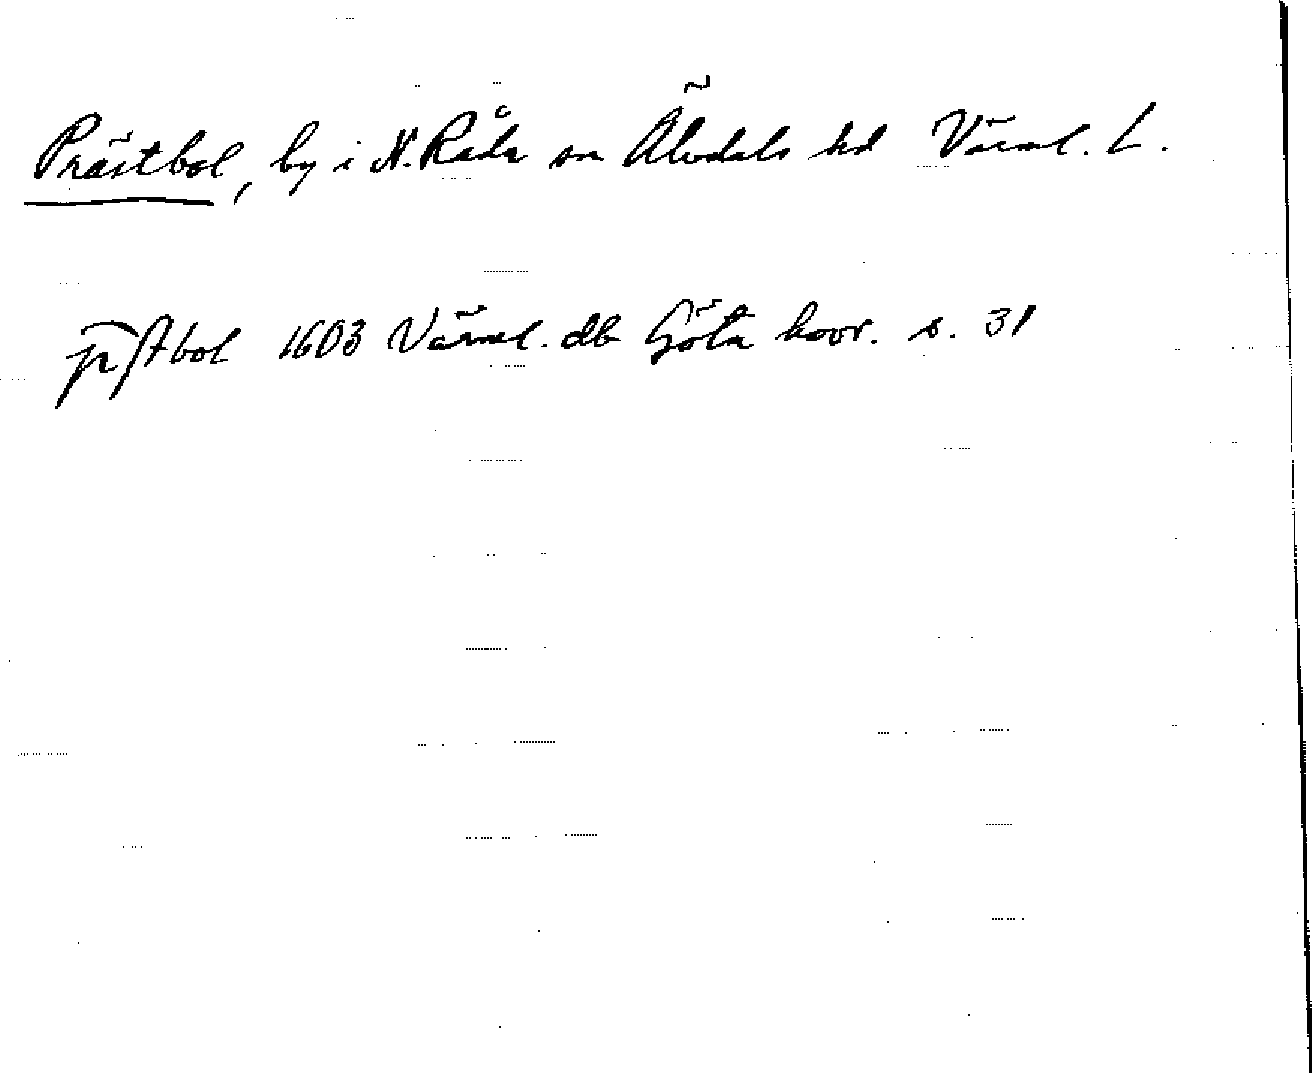 Prästbol, by i N. Råda sn Älvdals hd Värml. L.
prstbol 1603 Värml. db Göta hovr. s. 31